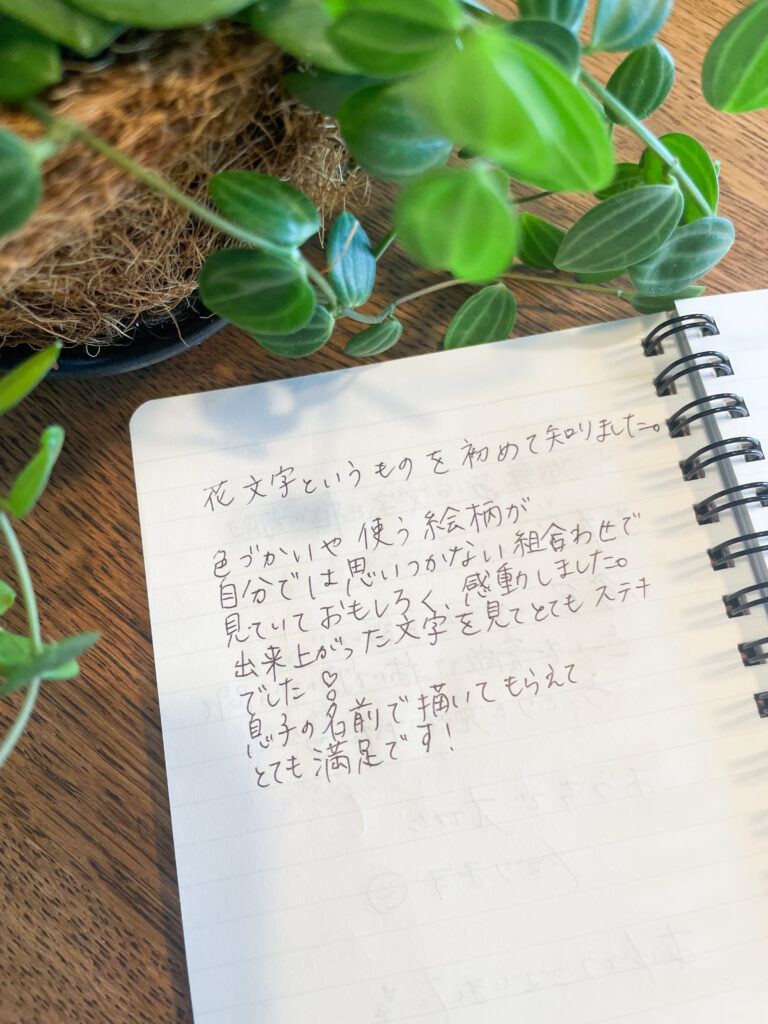 花文字というものを初めて知りました。
色づかいや使う絵柄が
自分では思いつかない組合わせで
見ていておもしろく、感動しました。
出来上がった文字を見てとてもステキ
でした♡
息子の名前で描いてもらえて
とても満足です!